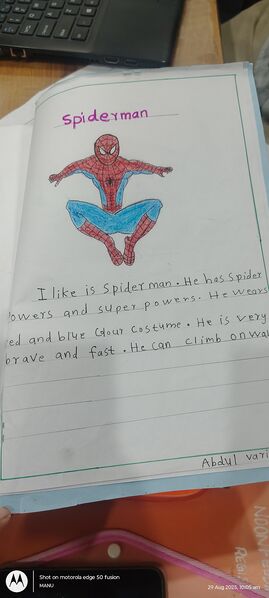 Spiderman
I like is Spiderman. He has Spider
powers and super powers. He wears
red and blue Colour Costume. He is very
brave and fast. He can climb on wa
Abdul vari
Shot on motorola edge 50 fusion
MANU
29 Aug 2025, 10:05 am